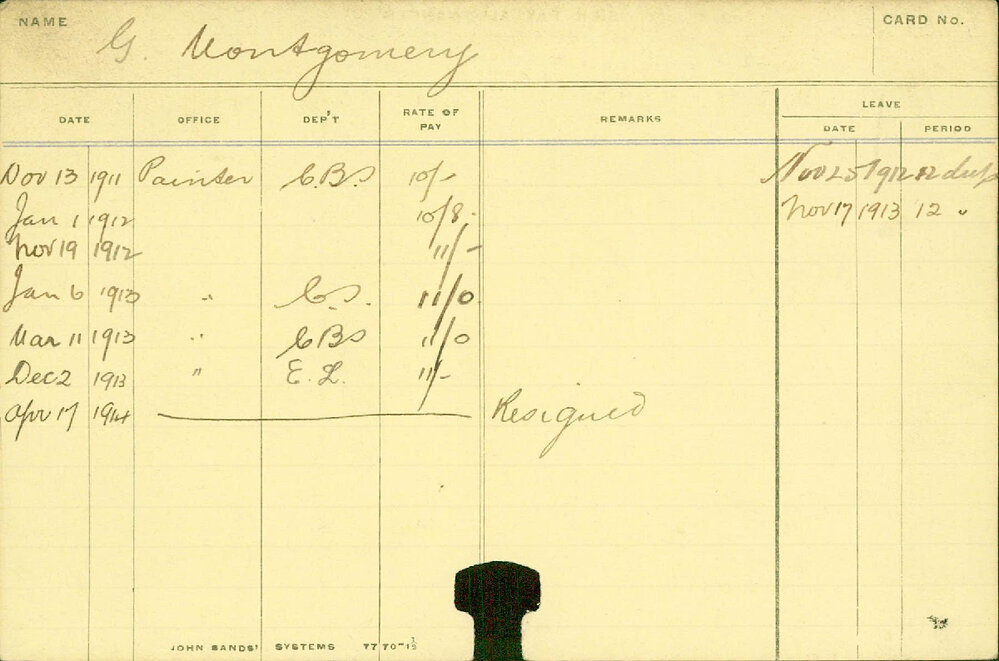 NAME G. Montgomery CARD No.
LEAVE
DATE OFFICE DEP'T RATE OF PAY REMARKS DATE PERIOD
Nov 13 1911 Painter C.B.S 10/- Nov 25 1912 12 days
Jan 1 1912 10/8. Nov 17 1913 12 "
Nov 19 1912 11/-
Jan 6 1913 " C.S. 11/0.
Mar 11 1913 " C.B.S 11/0
Dec 2 1913 " E.L. 11/-
Apr 17 1914 Resigned
JOHN SANDS' SYSTEMS